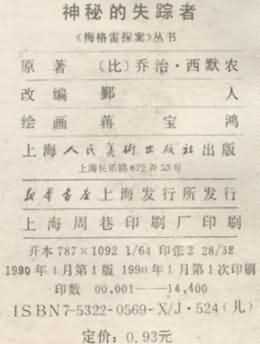 神秘的失踪者
《梅格雷探案》丛书
原著 （比）乔治·西默农
改编 鄞人
绘画 蒋宝鸿
上海人民美术出版社出版
上海长乐路672弄33号
新华书店上海发行所发行
上海周巷印刷厂印刷
开本787×1092 1/64 印张2 28/32
1990年1月第1版 1990年1月第1次印刷
印数 00,001——14,400
ISBN7-5322-0569-X/J·524（儿）
定价：0.93元